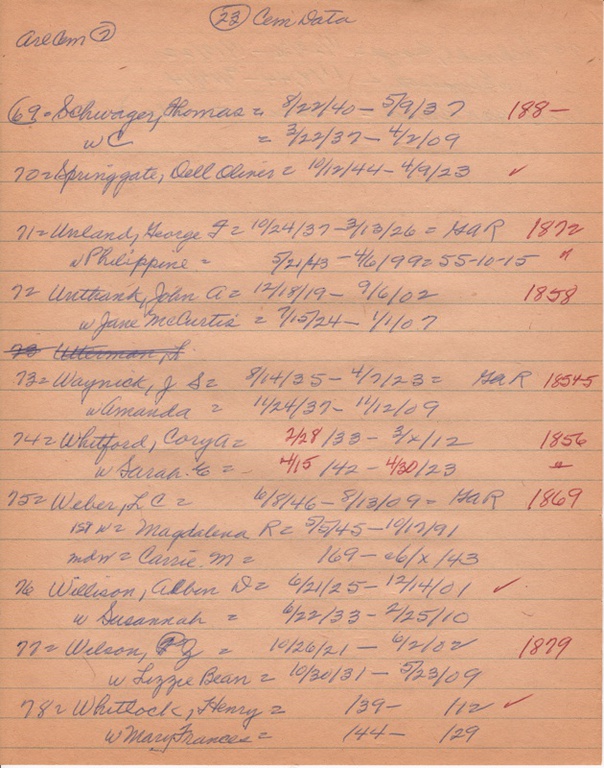 (23) Cem Data
Are Cem (2)
(69 = Schwager, Thomas = 8/22/40 - 5/9/37 188-
w C = 3/22/37 - 4/2/09
70 = Springgate, Dell Oliver = 10/12/44 - 4/9/23 ✓
71 = Unland, George F = 10/24/37 - 3/13/26 = GaR 1872
w Philippine = 5/21/43 - 4/6/99 = 55-10-15 "
72 Unthank, John A = 12/18/19 - 9/6/02 1858
w Jane McCurtis = 7/15/24 - 1/1/07
73 Utterman, L
73 = Waynick, J S = 8/14/35 - 4/7/23 = GaR 1854-5
w Amanda = 11/24/37 - 11/12/09
74 = Whitford, Cory A = 2/28/33 - 3/x/12 1856
w Sarah E = 4/15/42 - 4/30/23
75 = Weber, L C = 6/8/46 - 8/13/09 = GaR 1869
1st w = Magdalena R = 5/5/45 - 10/17/91
2nd w = Carrie M = 169 - 6/x/43
76 Willison, Alben D = 6/21/25 - 12/14/01 ✓
w Susannah = 6/22/33 - 2/25/10
77 = Wilson, J = 10/26/21 - 6/2/02 1879
w Lizzie Bean = 10/30/31 - 5/23/09
78 = Whitlock, Henry = /39 - /12 ✓
w Mary Frances = /44 - /29